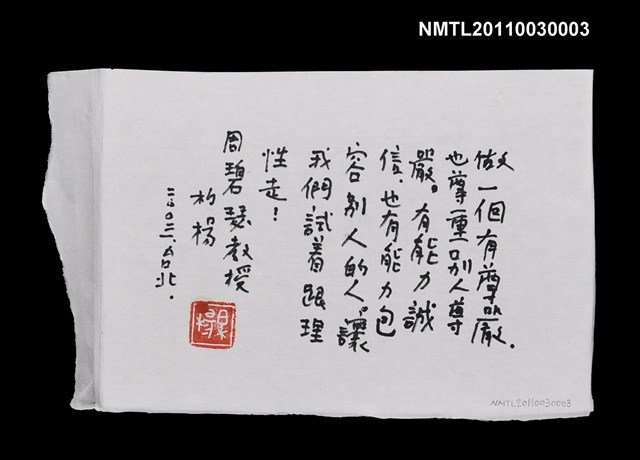 NMTL20110030003
做一個有尊嚴．
也尊重別人尊
嚴。有能力誠
信、也有能力包
容別人的人。讓
我們試着跟理
性走！
周碧瑟教授
柏楊
二〇〇三．台北．
柏楊
NMTL20110030003